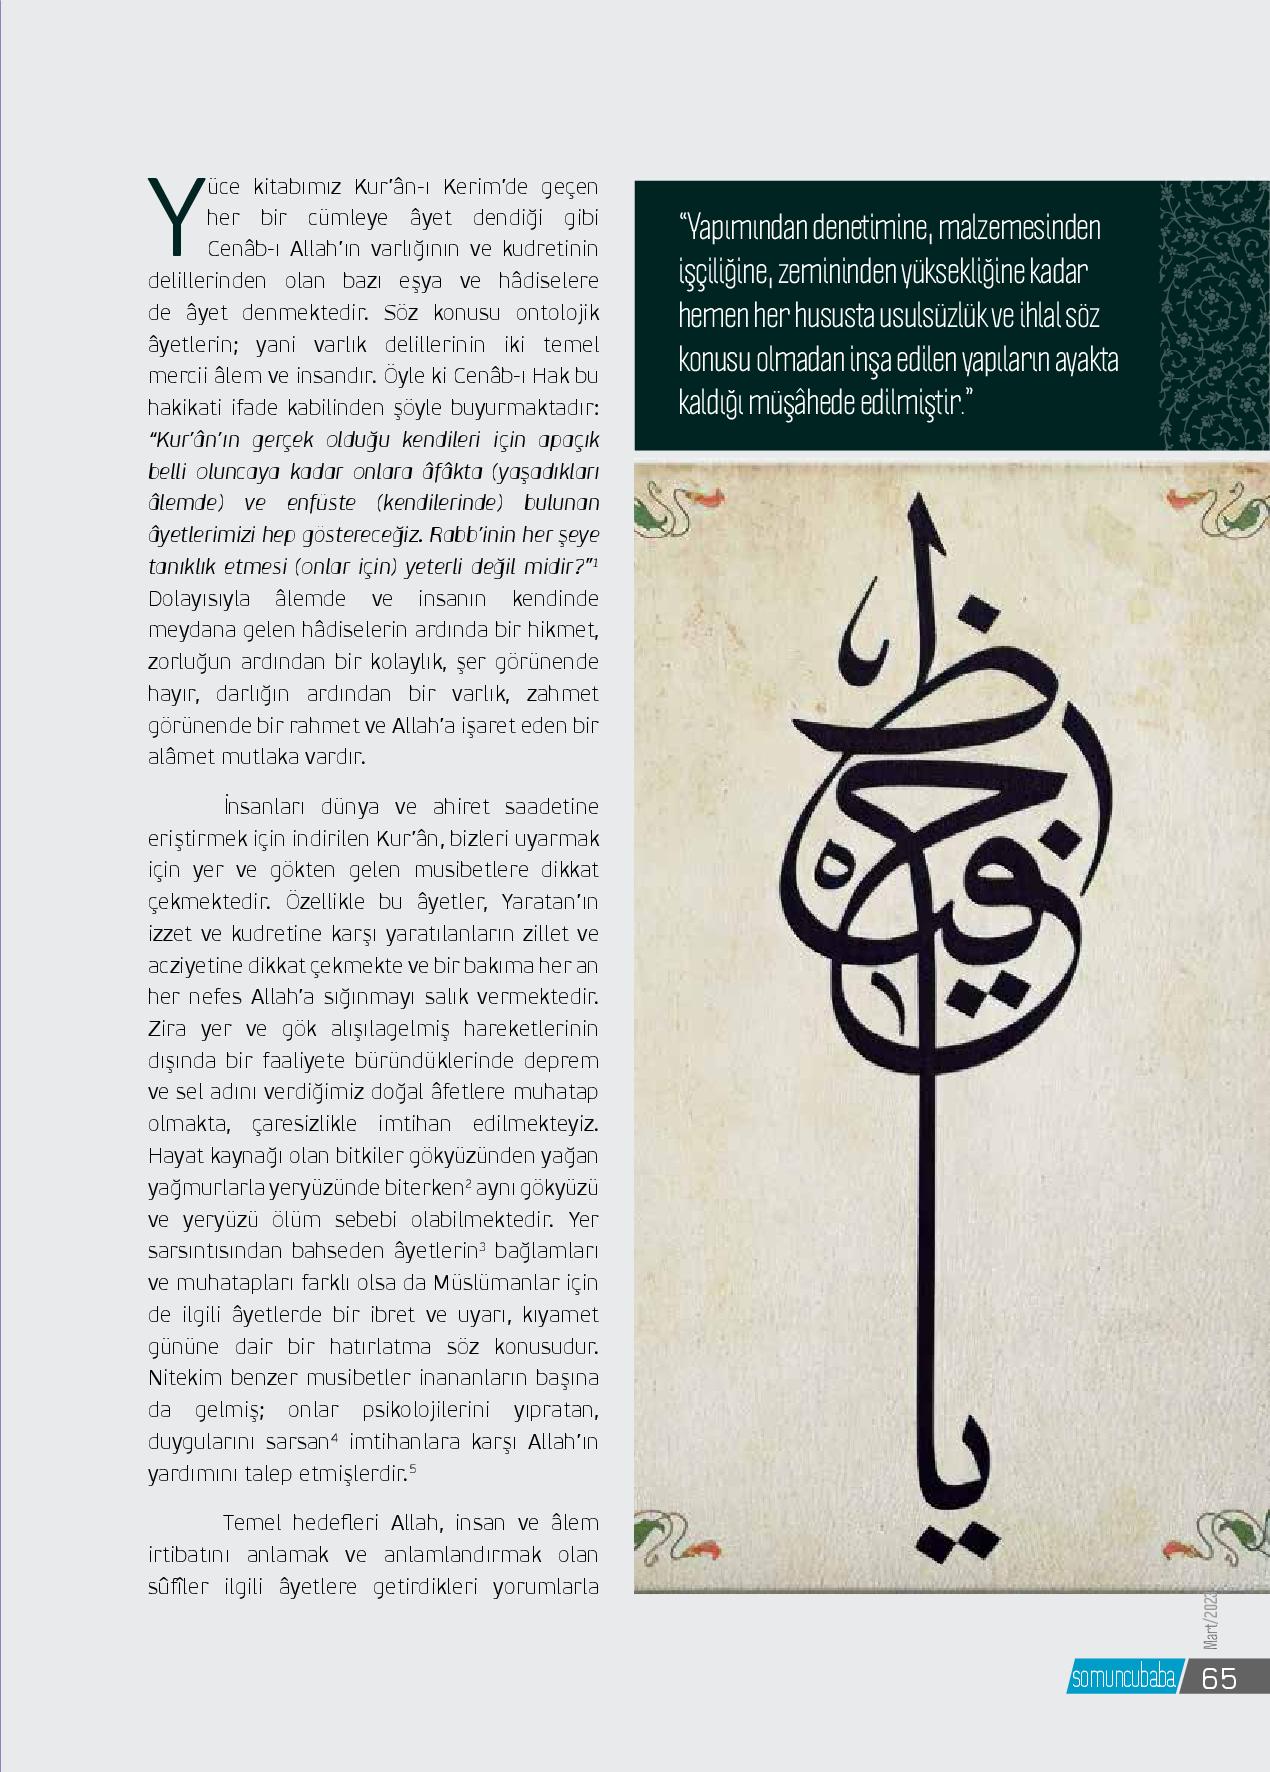 Yüce kitabımız Kur'ân-ı Kerim'de geçen
her bir cümleye âyet dendiği gibi
Cenâb-ı Allah'ın varlığının ve kudretinin
delillerinden olan bazı eşya ve hâdiselere
de âyet denmektedir. Söz konusu ontolojik
âyetlerin; yani varlık delillerinin iki temel
mercii âlem ve insandır. Öyle ki Cenâb-ı Hak bu
hakikati ifade kabilinden şöyle buyurmaktadır:
“Kur’ân’ın gerçek olduğu kendileri için apaçık
belli oluncaya kadar onlara âfâkta (yaşadıkları
âlemde) ve enfüste (kendilerinde) bulunan
âyetlerimizi hep göstereceğiz. Rabb’inin her şeye
tanıklık etmesi (onlar için) yeterli değil midir?”¹
Dolayısıyla âlemde ve insanın kendinde
meydana gelen hâdiselerin ardında bir hikmet,
zorluğun ardından bir kolaylık, şer görünende
hayır, darlığın ardından bir varlık, zahmet
görünende bir rahmet ve Allah’a işaret eden bir
alâmet mutlaka vardır.
İnsanları dünya ve ahiret saadetine
eriştirmek için indirilen Kur’ân, bizleri uyarmak
için yer ve gökten gelen musibetlere dikkat
çekmektedir. Özellikle bu âyetler, Yaratan’ın
izzet ve kudretine karşı yaratılanların zillet ve
acziyetine dikkat çekmekte ve bir bakıma her an
her nefes Allah’a sığınmayı salık vermektedir.
Zira yer ve gök alışılagelmiş hareketlerinin
dışında bir faaliyete büründüklerinde deprem
ve sel adını verdiğimiz doğal âfetlere muhatap
olmakta, çaresizlikle imtihan edilmekteyiz.
Hayat kaynağı olan bitkiler gökyüzünden yağan
yağmurlarla yeryüzünde biterken² aynı gökyüzü
ve yeryüzü ölüm sebebi olabilmektedir. Yer
sarsıntısından bahseden âyetlerin³ bağlamları
ve muhatapları farklı olsa da Müslümanlar için
de ilgili âyetlerde bir ibret ve uyarı, kıyamet
gününe dair bir hatırlatma söz konusudur.
Nitekim benzer musibetler inananların başına
da gelmiş; onlar psikolojilerini yıpratan,
duygularını sarsan⁴ imtihanlara karşı Allah’ın
yardımını talep etmişlerdir.⁵
Temel hedefleri Allah, insan ve âlem
irtibatını anlamak ve anlamlandırmak olan
sûfîler ilgili âyetlere getirdikleri yorumlarla
“Yapımından denetimine, malzemesinden
işçiliğine, zemininden yüksekliğine kadar
hemen her hususta usulsüzlük ve ihlal söz
konusu olmadan inşa edilen yapıların ayakta
kaldığı müşâhede edilmiştir.”
يا حفيظ
Mart/2023
somuncubaba 65